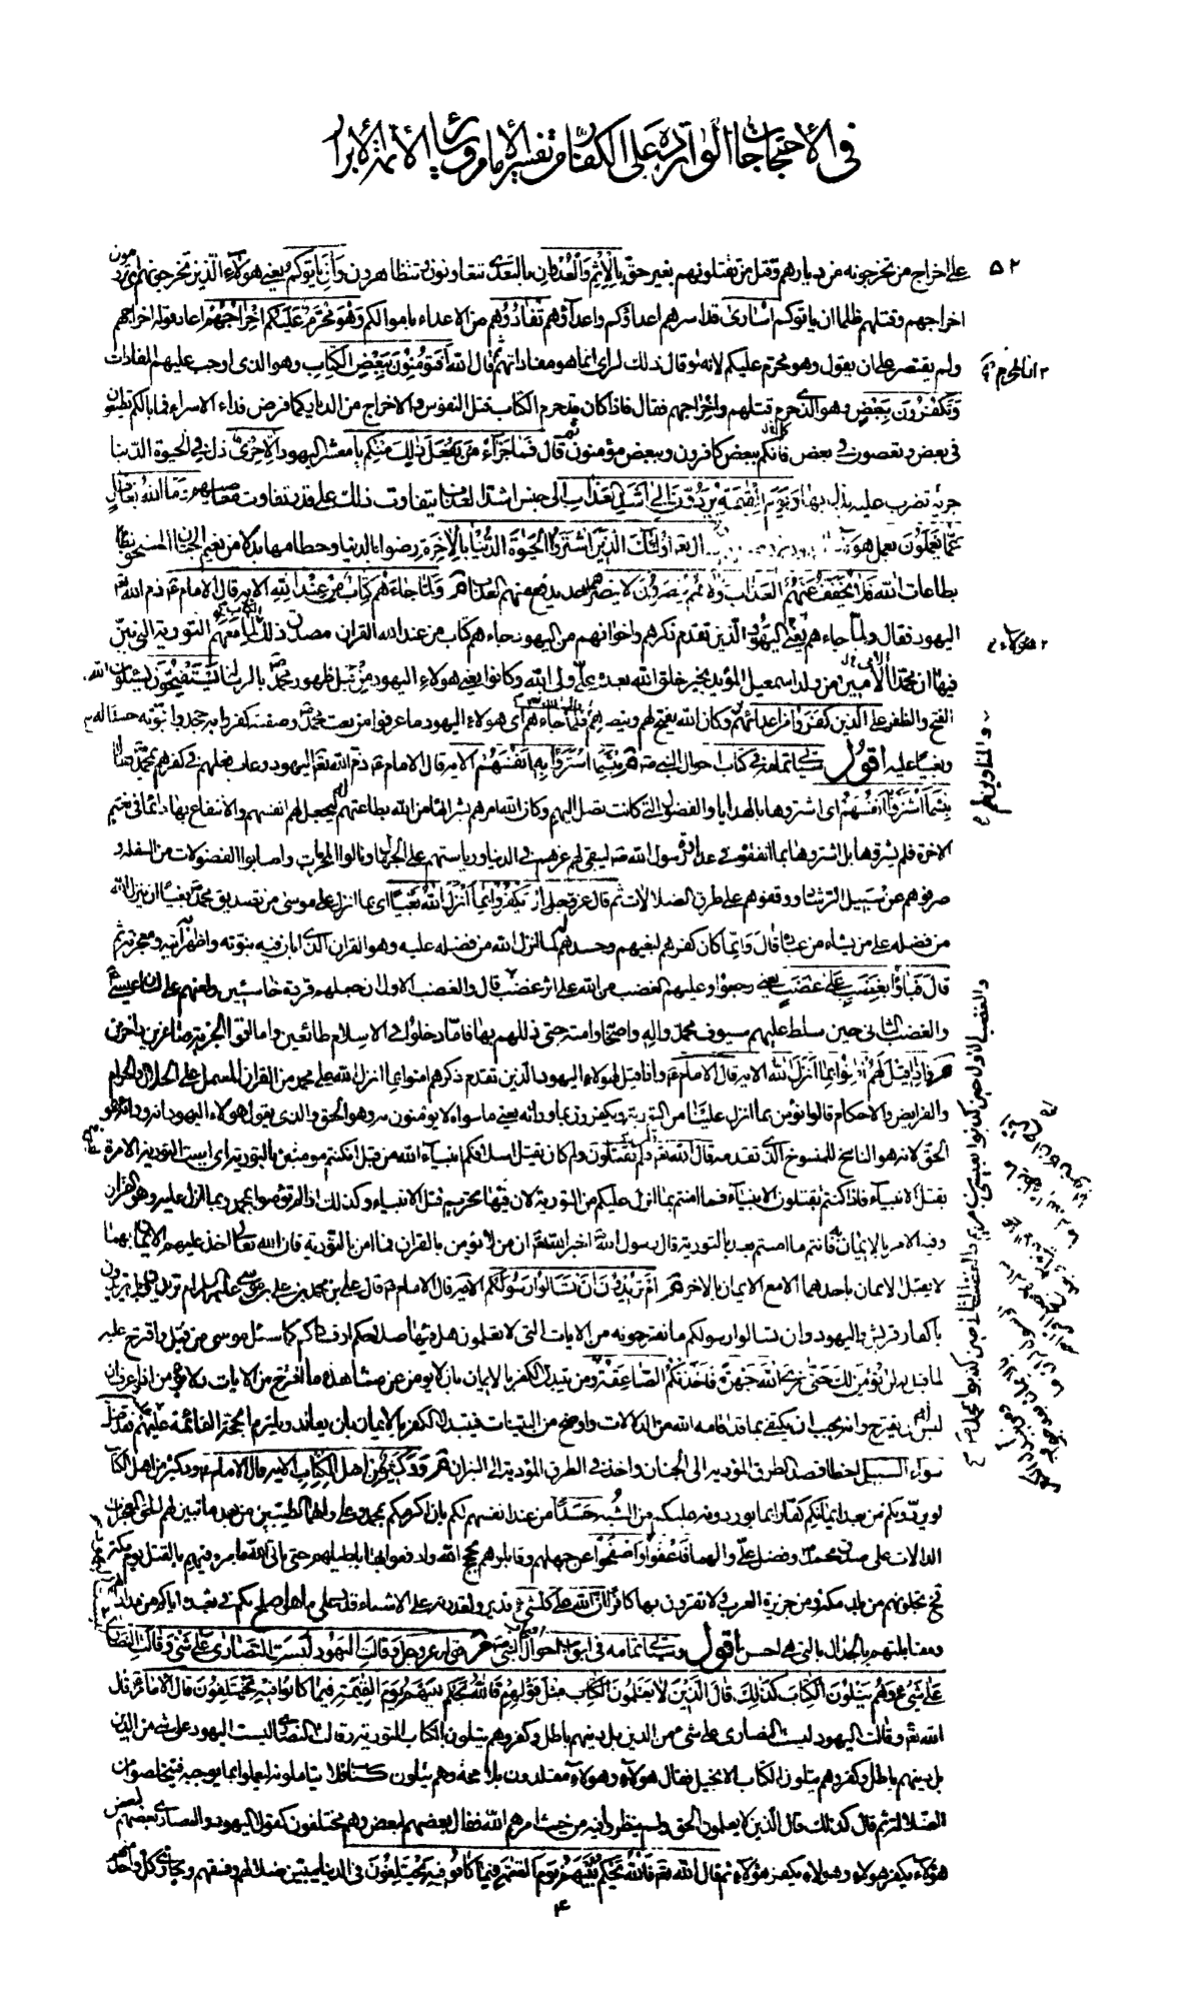 في الاحتجاجات الواردة على الكفار من تفسير الامام وروايات الائمة الابرار
٥٢
على اخراج من تخرجونه من ديارهم وقتل من تقتلونهم بغير حق بالاثم والعدوان بالتعدى تتعاونون وتتظاهرون وان ياتوكم يعنى هؤلاء الذين تخرجونهم اى ترومون
اخراجهم وقتلهم ظلما ان ياتوكم اسارى قد اسرهم اعداؤكم واعداؤهم تفادوهم من الاعداء باموالكم وهو محرم عليكم اخراجهم اعاد قوله اخراجهم
ولم يقتصر على ان يقول وهو محرم عليكم لانه لو قال ذلك لراى انما هو مفاداتهم ثم قال الله افتؤمنون ببعض الكتاب وهو الذى اوجب عليهم المفادات
وتكفرون ببعض وهو الذى حرم قتلهم واخراجهم فقال فاذا كان قد حرم الكتاب قتل النفوس والاخراج من الديار كما فرض فداء الاسراء فما بالكم تطيعون
فى بعض وتعصون فى بعض كانكم ببعض كافرون وببعض مؤمنون ثم قال فما جزاء من يفعل ذلك منكم يا معشر اليهود الا خزى ذل فى الحيوة الدنيا
جزية تضرب عليه يذل بها ويوم القيمة يردون الى اشد العذاب الى جنس اشد العذاب يتفاوت ذلك على قدر تفاوت معاصيهم وما الله بغافل
عما تعملون يعمل هؤلاء اولئك الذين اشتروا الحيوة الدنيا بالاخرة رضوا بالدنيا وحطامها بدلا من نعيم الجنان المستحق
بطاعات الله فلا يخفف عنهم العذاب ولا هم ينصرون لا ينصرهم احد يدفع عنهم العذاب ولما جاءهم كتاب من عند الله الاية قال الامام ذم الله
اليهود فقال ولما جاءهم يعنى اليهود الذين تقدم ذكرهم واخوانهم من اليهود جاءهم كتاب من عند الله القران مصدق ذلك الكتاب لما معهم التورية التى بين
فيها ان محمدا الامى من ولد اسمعيل المؤيد بخير خلق الله بعده على ولى الله وكانوا يعنى هؤلاء اليهود من قبل ظهور محمد بالرسالة يستفتحون يسئلون الله
الفتح والظفر على الذين كفروا من اعدائهم وكان الله يفتح لهم وينصرهم فلما جاءهم اى هؤلاء اليهود ما عرفوا من نعت محمد وصفته كفروا به جحدوا نبوته حسدا له
وبغيا عليه اقول سياتى تمامه فى كتاب احوال النبى بئسما اشتروا به انفسهم الاية قال الامام ذم الله اليهود وعاب فعلهم فى كفرهم بمحمد فقال
بئسما اشتروا به انفسهم اى اشتروها بالهدايا والفضول التى كانت تصل اليهم وكان الله امرهم بشرائها من الله بطاعتهم له ليجعل لهم انفسهم والانتفاع بها دائما فى نعيم
الاخرة فلم يشتروها بل اشتروها بما انفقوه فى عداوة رسول الله ليبقى لهم عزهم فى الدنيا ورياستهم على الجهال وينالوا المحرمات واصابوا الفضولات من السفلة و
صرفوهم عن سبيل الرشاد ووقفوهم على طرق الضلالات ثم قال عز وجل ان يكفروا بما انزل الله بغيا اى بما انزل على موسى من تصديق محمد بغيا ان ينزل الله
من فضله على من يشاء من عباده قال وانما كان كفرهم لبغيهم وحسدهم له لما انزل الله من فضله عليه وهو القران الذى ابان فيه نبوته واظهر به آيته ومعجزته ثم
قال فباؤا بغضب على غضب يعنى رجعوا وعليهم الغضب من الله على اثر غضب قال والغضب الاول ان جعلهم قردة خاسئين ولعنهم على لسان عيسى
والغضب الثانى حين سلط عليهم سيوف محمد واله واصحابه وامته حتى ذللهم بها فاما دخلوا فى الاسلام طائعين واما ادوا الجزية صاغرين داخرين
واذا قيل لهم امنوا بما انزل الله الاية قال الامام واذا قيل لهؤلاء اليهود الذين تقدم ذكرهم امنوا بما انزل الله على محمد من القران المشتمل على الحلال والحرام
والفرايض والاحكام قالوا نؤمن بما انزل علينا من التورية ويكفرون بما وراءه يعنى ما سواه لا يؤمنون به وهو الحق والذى يقول هؤلاء اليهود انه وراءه هو
الحق لانه هو الناسخ للمنسوخ الذى تقدمه قال الله قل فلم تقتلون ولم كان يقتل اسلافكم انبياء الله من قبل ان كنتم مؤمنين بالتورية اى ليست التورية الامرة
بقتل الانبياء فاذا كنتم تقتلون الانبياء فما امنتم بما انزل عليكم من التورية لان فيها تحريم قتل الانبياء وكذلك اذا لم تؤمنوا بمحمد وبما انزل عليه وهو القران
وفيه الامر بالايمان به فانتم ما امنتم بعد بالتورية قال رسول الله اخبر الله ان من لا يؤمن بالقران فما امن بالتورية فان الله تعالى اخذ عليهم الايمان بهما
لا يقبل الايمان باحدهما الا مع الايمان بالاخر ام تريدون ان تسئلوا رسولكم الاية قال الامام قال على بن محمد بن على بن موسى عليهم السلام ام تريدون بل تريدون
يا كفار قريش واليهود ان تسئلوا رسولكم ما تقترحونه من الايات التى لا تعلمون هل فيها صلاحكم او فسادكم كما سئل موسى من قبل واقترح عليه
لما قيل له لن نؤمن لك حتى نرى الله جهرة فاخذتكم الصاعقة ومن يتبدل الكفر بالايمان بان لا يؤمن عند مشاهدة ما اقترح من الايات
ليس له ان يقترح وانه يجب ان يكتفى بما قد اقامه الله من الدلالات واوضح من البينات فيتبدل الكفر بالايمان بان يعاند ولا يلتزم الحجة القائمة عليهم فقد ضل
سواء السبيل اخطا قصد الطرق المؤدية الى الجنان واخذ فى الطرق المؤدية الى النيران ود كثير من اهل الكتاب الاية قال الامام ود كثير من اهل الكتاب
لو يردونكم من بعد ايمانكم كفارا بما يوردونه عليكم من الشبه حسدا من عند انفسهم لكم بان اكرمكم بمحمد وعلى والهما الطيبين من بعد ما تبين لهم الحق
الدالات على صدق محمد وفضل على والهما فاعفوا واصفحوا عن جهلهم وقابلوهم بحجج الله وادفعوا بها اباطيلهم حتى ياتى الله بامره فيهم بالقتل يوم مكة
فح تجلونهم من بلد مكة ومن جزيرة العرب ولا تقرون بها كافرا ان الله على كلشىء قدير ولقدرته على الاشياء قدر على ما هو اصلح لكم فى تعبده اياكم من مداراتهم
ومقابلتهم بالجدال بالتى هى احسن اقول وسياتى تمامه فى ابواب احوال النبى قوله عز وجل وقالت اليهود ليست النصارى على شىء وقالت النصارى
على شىء وهم يتلون الكتاب كذلك قال الذين لا يعلمون الكتاب مثل قولهم فالله يحكم بينهم يوم القيمة فيما كانوا فيه يختلفون قال الامام قال
الله وقالت اليهود ليست النصارى على شىء من الدين بل دينهم باطل وكفر وهم يتلون الكتاب التورية وقالت النصارى ليست اليهود على شىء من الدين
بل دينهم باطل وكفر وهم يتلون الكتاب الانجيل فقال هؤلاء وهؤلاء مقلدون بلا حجة وهم يتلون الكتاب فلا يتاملونه ليعملوا بما يوجبه فيتخلصوا من
الضلالة ثم قال كذلك قال الذين لا يعلمون الحق ولم ينظروا فيه من حيث امرهم الله فقال بعضهم لبعض وهم مختلفون كقول اليهود والنصارى بعضهم لبعض
هؤلاء يكفر هؤلاء وهؤلاء يكفر هؤلاء ثم قال الله فالله يحكم بينهم يوم القيمة فيما كانوا فيه يختلفون فى الدنيا يبين ضلالهم وفسقهم ويجازى كل واحد
٤